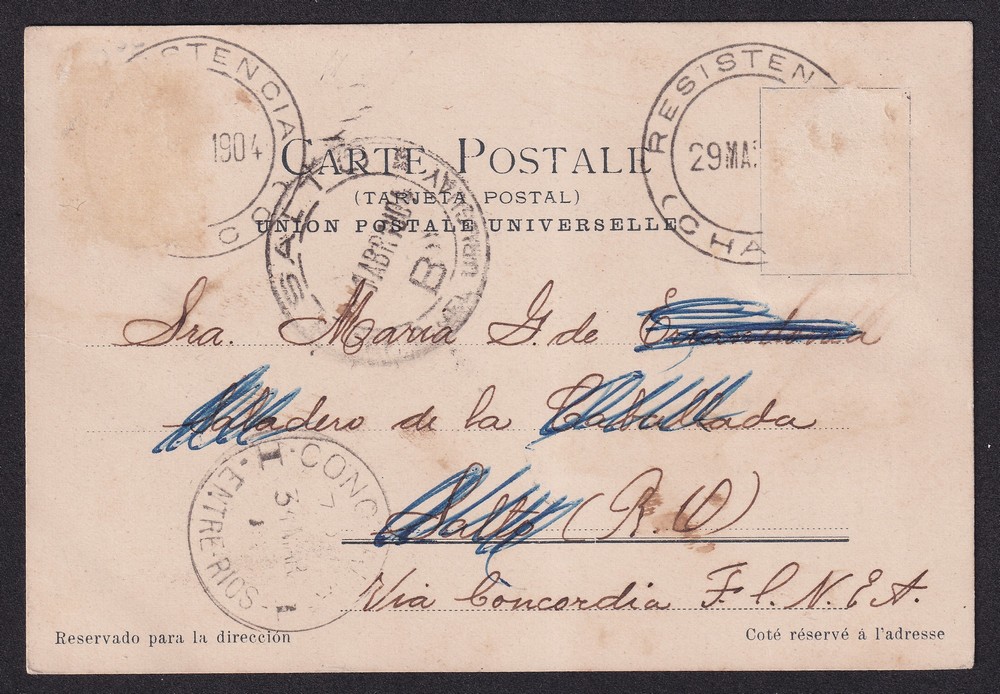 RESISTENCIA
CHACO
1904
RESISTEN
(CHA
29 MA
CARTE POSTALE
(TARJETA POSTAL)
UNION POSTALE UNIVERSELLE
SALTO
URUGUAY
1 ABR 1904
B
Sra. Maria G. de
Saladero de la Caballada
Salto (R O)
Via Concordia F. C. N. E. A.
CONC
ENTRE-RIOS
31 MAR
Reservado para la dirección
Coté réservé á l'adresse